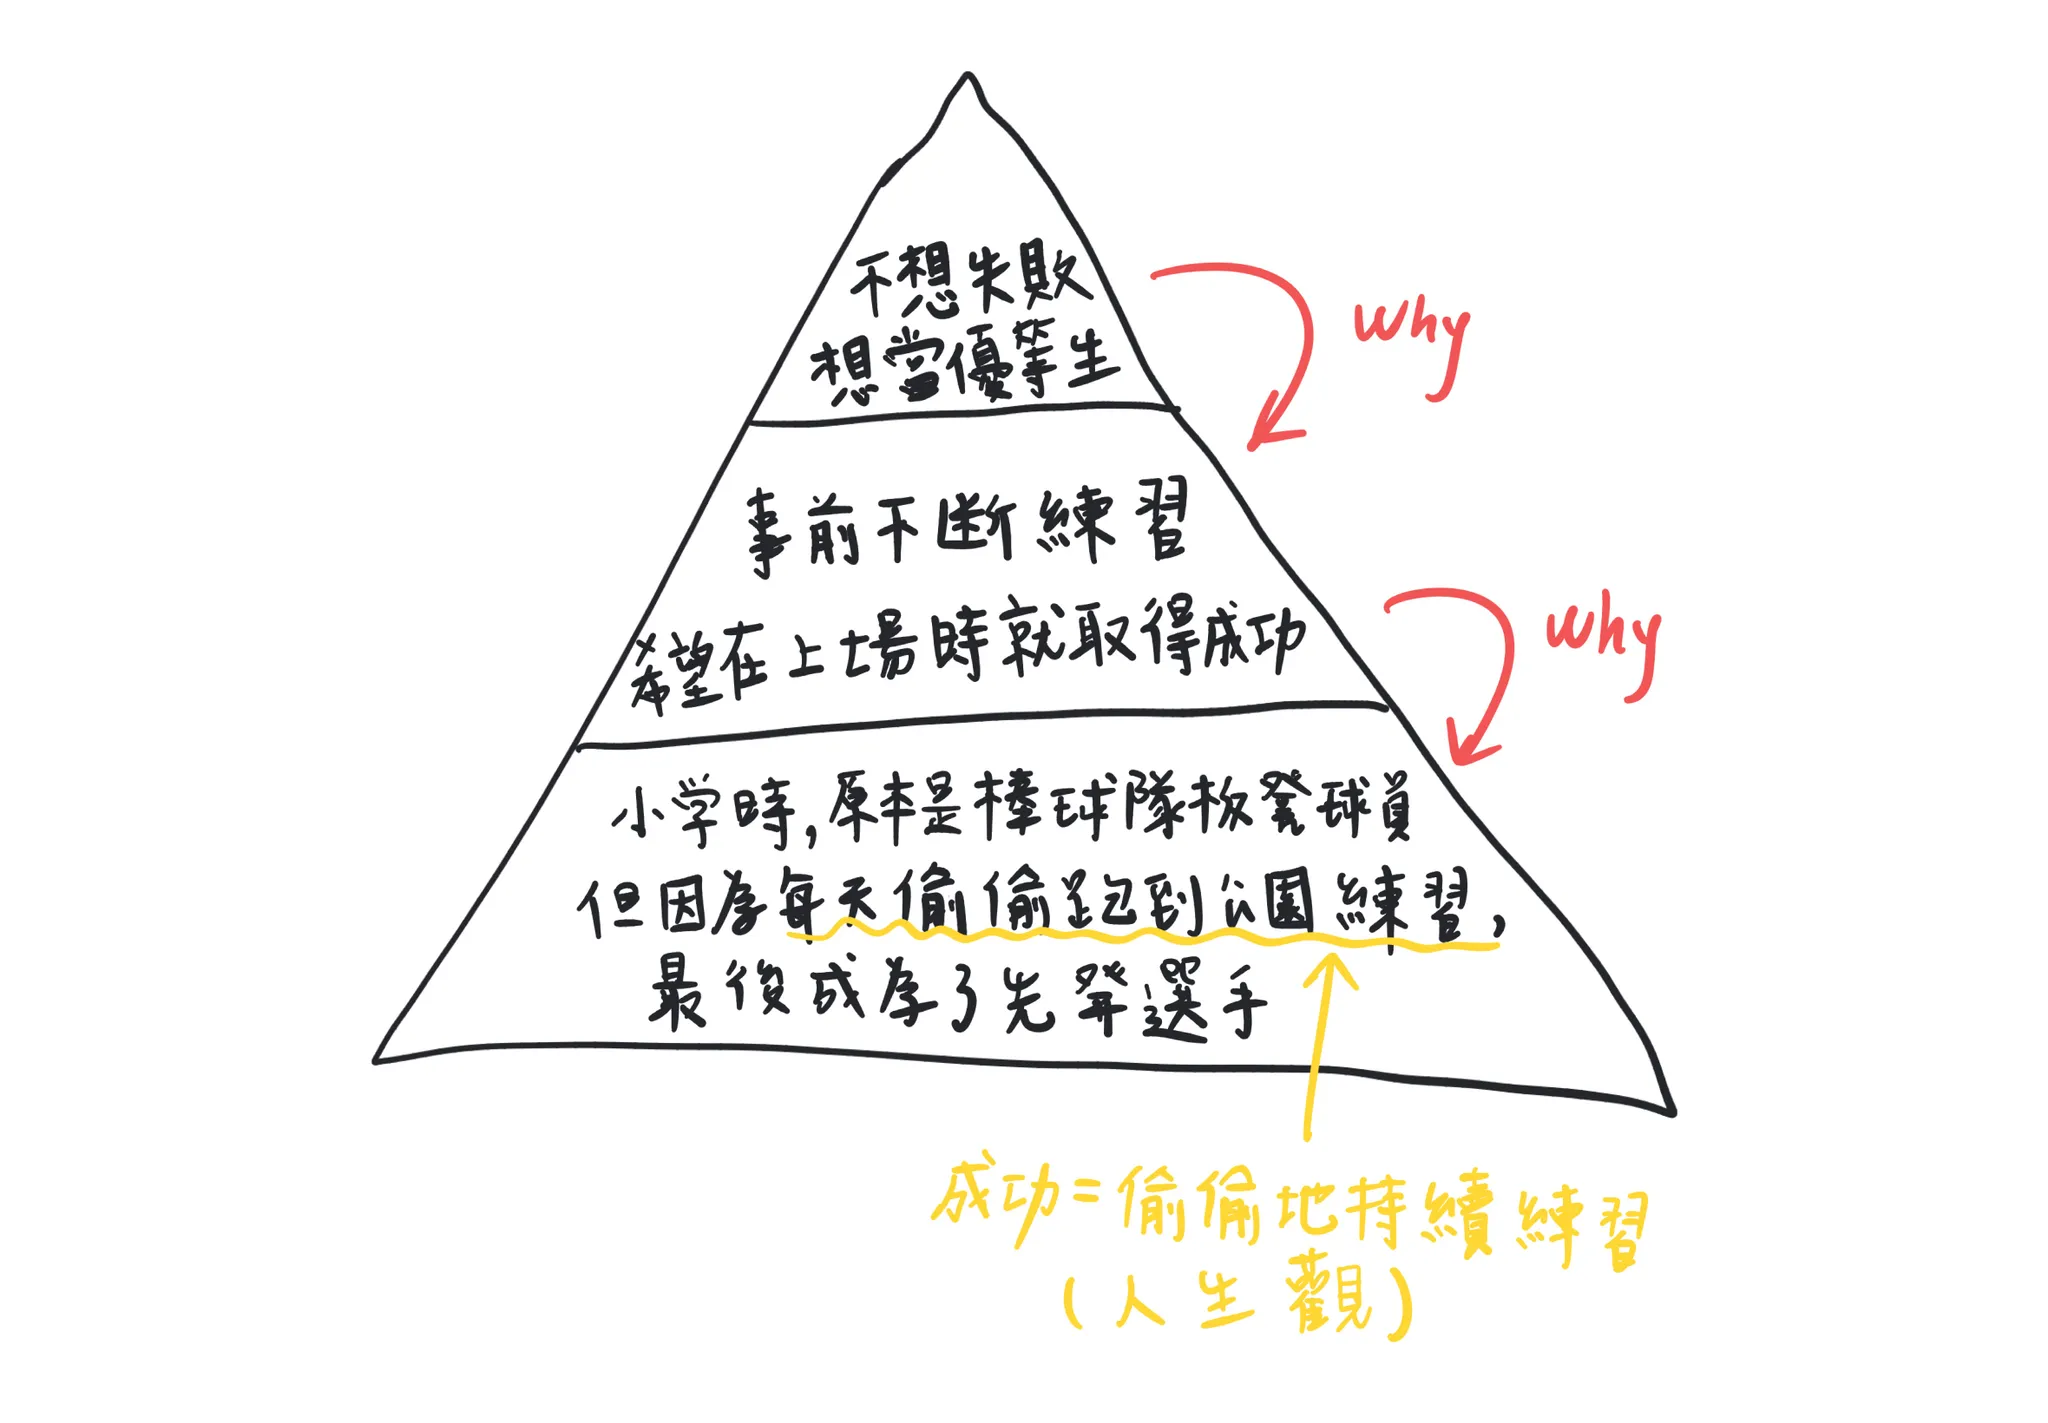 不想失敗
想當優等生
why
事前不斷練習
希望在上場時就取得成功
why
小学時,原本是棒球隊板凳球員
但因為每天偷偷跑到公園練習,
最後成為了先発選手
成功=偷偷地持續練習
(人生觀)